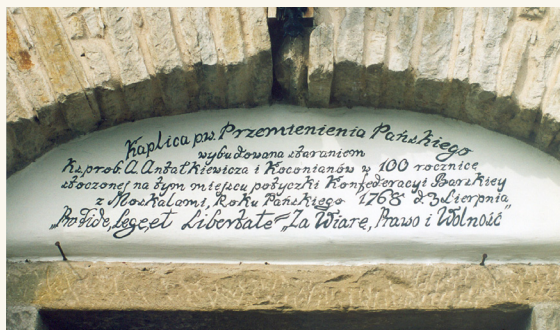 Kaplica pw. Przemienienia Pańskiego
wybudowana staraniem
Ks. prob. A. Antałkiewicza i Koconianów w 100 rocznicę
stoczonej na tym miejscu potyczki Konfederacyi Barskiey
z Moskalami, Roku Pańskiego 1768 d. 3 Sierpnia
„Pro Fide, Lege, et Libertate = „Za Wiarę, Prawo i Wolność”